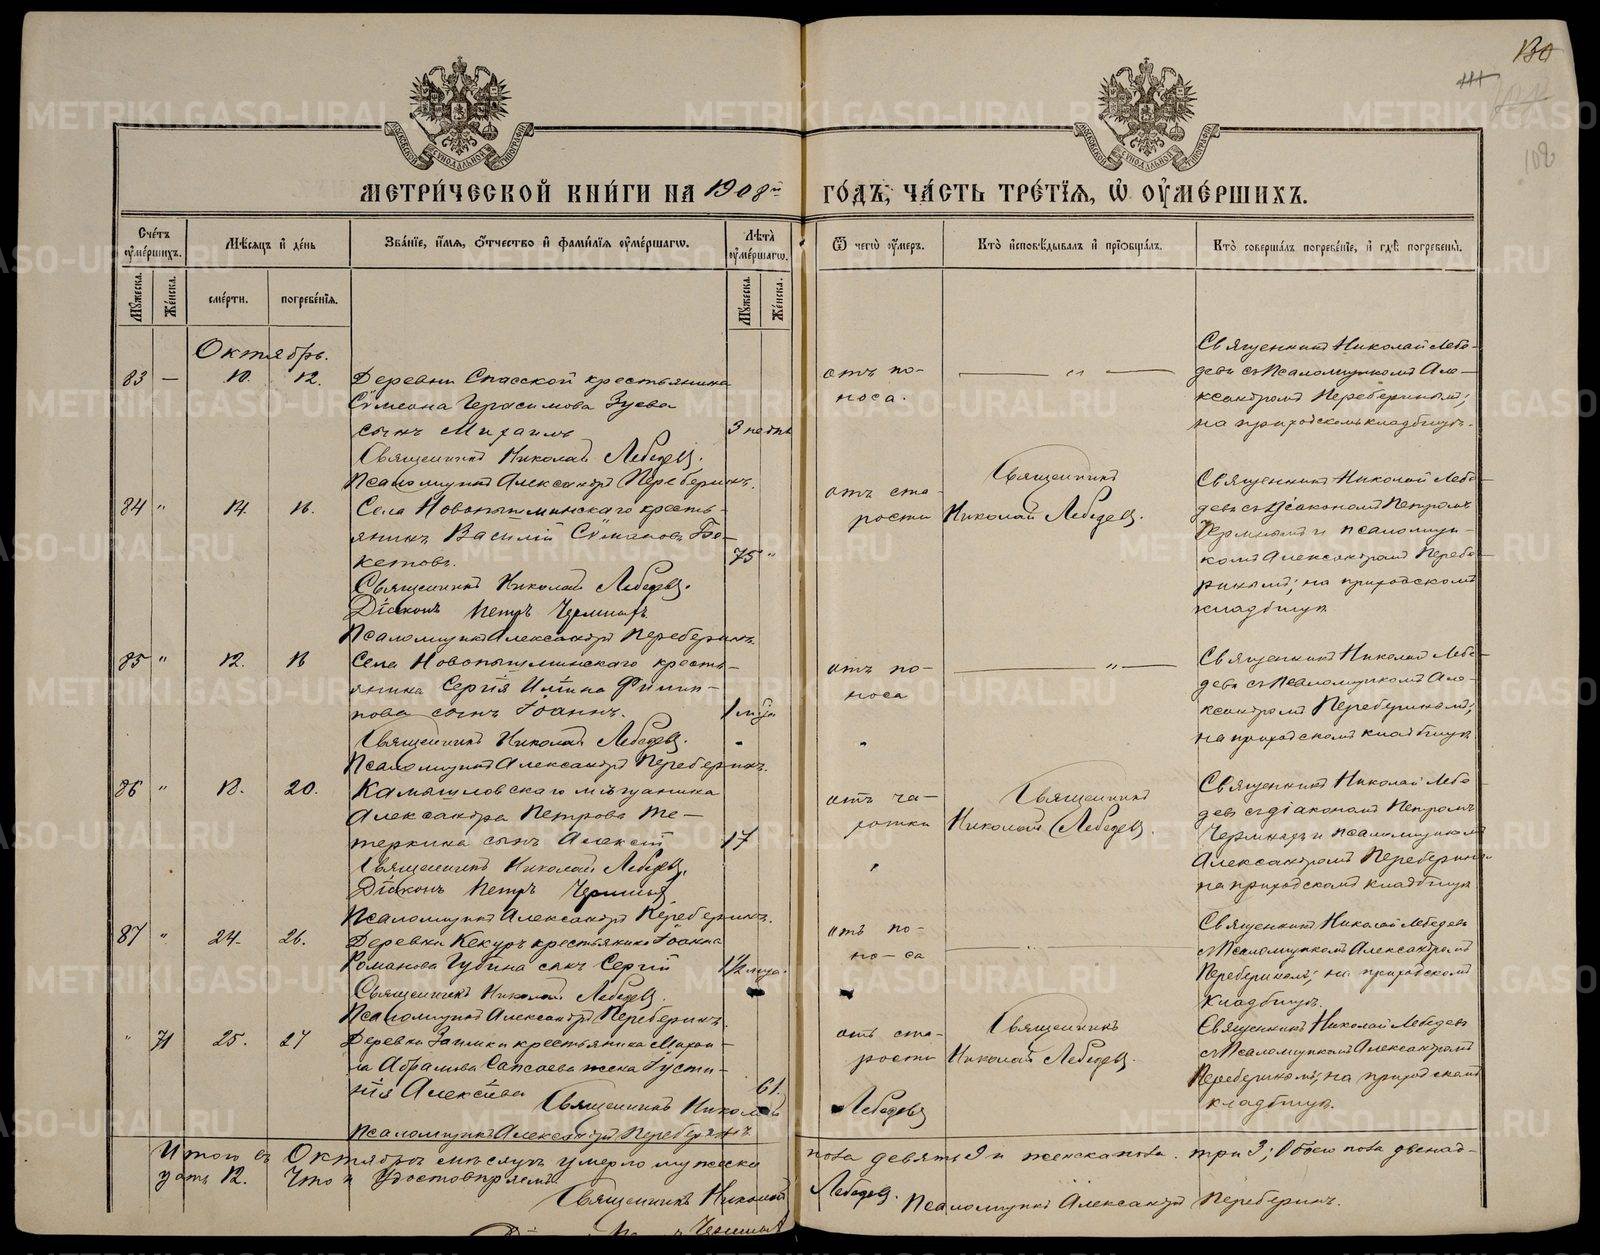 130
102
МЕТРИ́ЧЕСКОЙ КНИ́ГИ НА 1908й ГО́ДЪ, ЧА́СТЬ ТРЕ́ТЇЯ, Ѿ ОУ҆МЕ́РШИХЪ.
Сче́тъ оу҆ме́ршихъ.
Мѣ́сяцъ и҆ де́нь
Зва́нїе, и҆́мя, ѻ҆́тчество и҆ фами́лїя оу҆ме́ршагѡ.
Лѣ́та оу҆ме́ршагѡ.
Ѿ чегѡ̀ оу҆́меръ.
Кто̀ и҆сповѣ́дывалъ и҆ прїѡбща́лъ.
Кто̀ соверша́лъ погребе́нїе, и҆ гдѣ̀ погребены̀.
Мꙋ́жеска.
Же́нска.
сме́рти.
погребе́нїя.
Мꙋ́жеска.
Же́нска.
Октябрь.
83 — 10. 12.
Деревни Спасской крестьянина
Сѵмеона Герасимова Зуева
сынъ Михаилъ
3 недѣл
Священникъ Николай Лебедевъ.
Псаломщикъ Александръ Переберинъ.
отъ по-
носа.
— " —
Священникъ Николай Лебе-
девъ съ псаломщикомъ Але-
ксандромъ Переберинымъ;
на приходскомъ кладбищѣ.
84 " 14. 16.
Села Новопышминскаго кресть-
янинъ Василій Сѵмеоновъ Бе-
кетовъ.
75 "
Священникъ Николай Лебедевъ.
Діаконъ Петръ
Псаломщикъ Александръ Переберинъ.
отъ ста-
рости
Священникъ
Николай Лебедевъ.
Священникъ Николай Лебе-
девъ съ діакономъ Петромъ
и псаломщи-
комъ Александромъ Перебе-
ринымъ; на приходскомъ
кладбищѣ
85 " 12. 16
Села Новопышминскаго кресть-
янина Сергія Ильина Филип-
пова сынъ Іоаннъ.
1
Священникъ Николай Лебедевъ.
Псаломщикъ Александръ Переберинъ.
отъ по-
носа
" —
Священникъ Николай Лебе-
девъ съ псаломщикомъ Але-
ксандромъ Переберинымъ;
на приходскомъ кладбищѣ
86 " 18. 20.
Камышловскаго мѣщанина
Александра Петрова Те-
теркина сынъ Алексій
17
Священникъ Николай Лебедевъ.
Діаконъ Петръ
Псаломщикъ Александръ Переберинъ.
отъ ча-
хотки
Священникъ
Николай Лебедевъ.
Священникъ Николай Лебе-
девъ съ діакономъ Петромъ
и псаломщикомъ
Александромъ Переберин
на приходскомъ кладбищѣ
87 " 24. 26.
Деревни Кекуръ крестьянина Іоанна
Романова Губина сынъ Сергій
1½
Священникъ Николай Лебедевъ.
Псаломщикъ Александръ Переберинъ.
отъ по-
но-са
Священникъ Николай Лебедевъ
съ псаломщикомъ Александромъ
Переберинымъ; на приходскомъ
кладбищѣ.
" 71 25. 27
Деревни Заимки крестьянина Михаи-
ла Абрамова Сапсаева жена Іусти-
нія Алексѣева
61.
Священникъ Николай Лебедевъ
Псаломщикъ Александръ Переберинъ
отъ ста-
рости
Священникъ
Николай Лебедевъ.
Священникъ Николай Лебедевъ
съ псаломщикомъ Александромъ
Переберинымъ; на приходскомъ
кладбищѣ.
Итого въ Октябрѣ мѣсяцѣ умерло мужеска пола девять 9 и женска пола три 3; Обоего пола двѣнад-
цать 12. Что и удостовѣряемъ
Священникъ Николай Лебедевъ. Псаломщикъ Александръ Переберинъ.